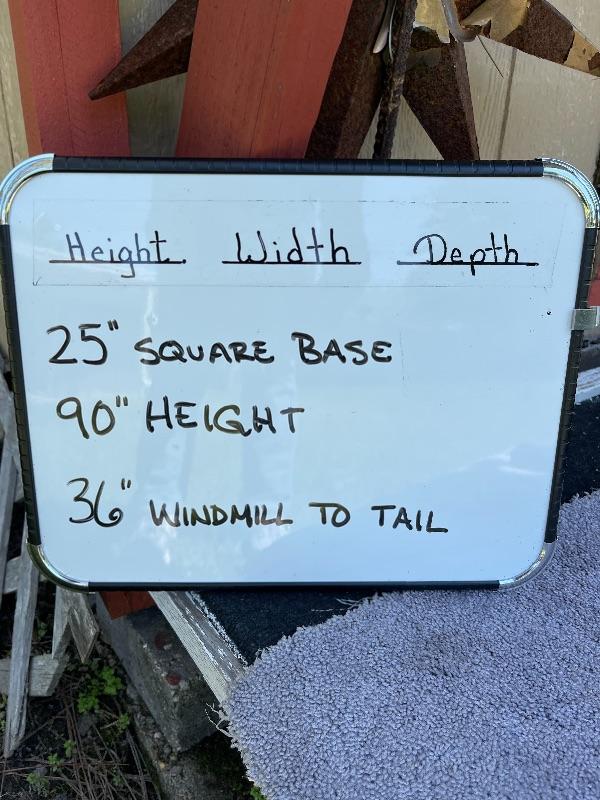 Height Width Depth
25" SQUARE BASE
90" HEIGHT
36" WINDMILL TO TAIL